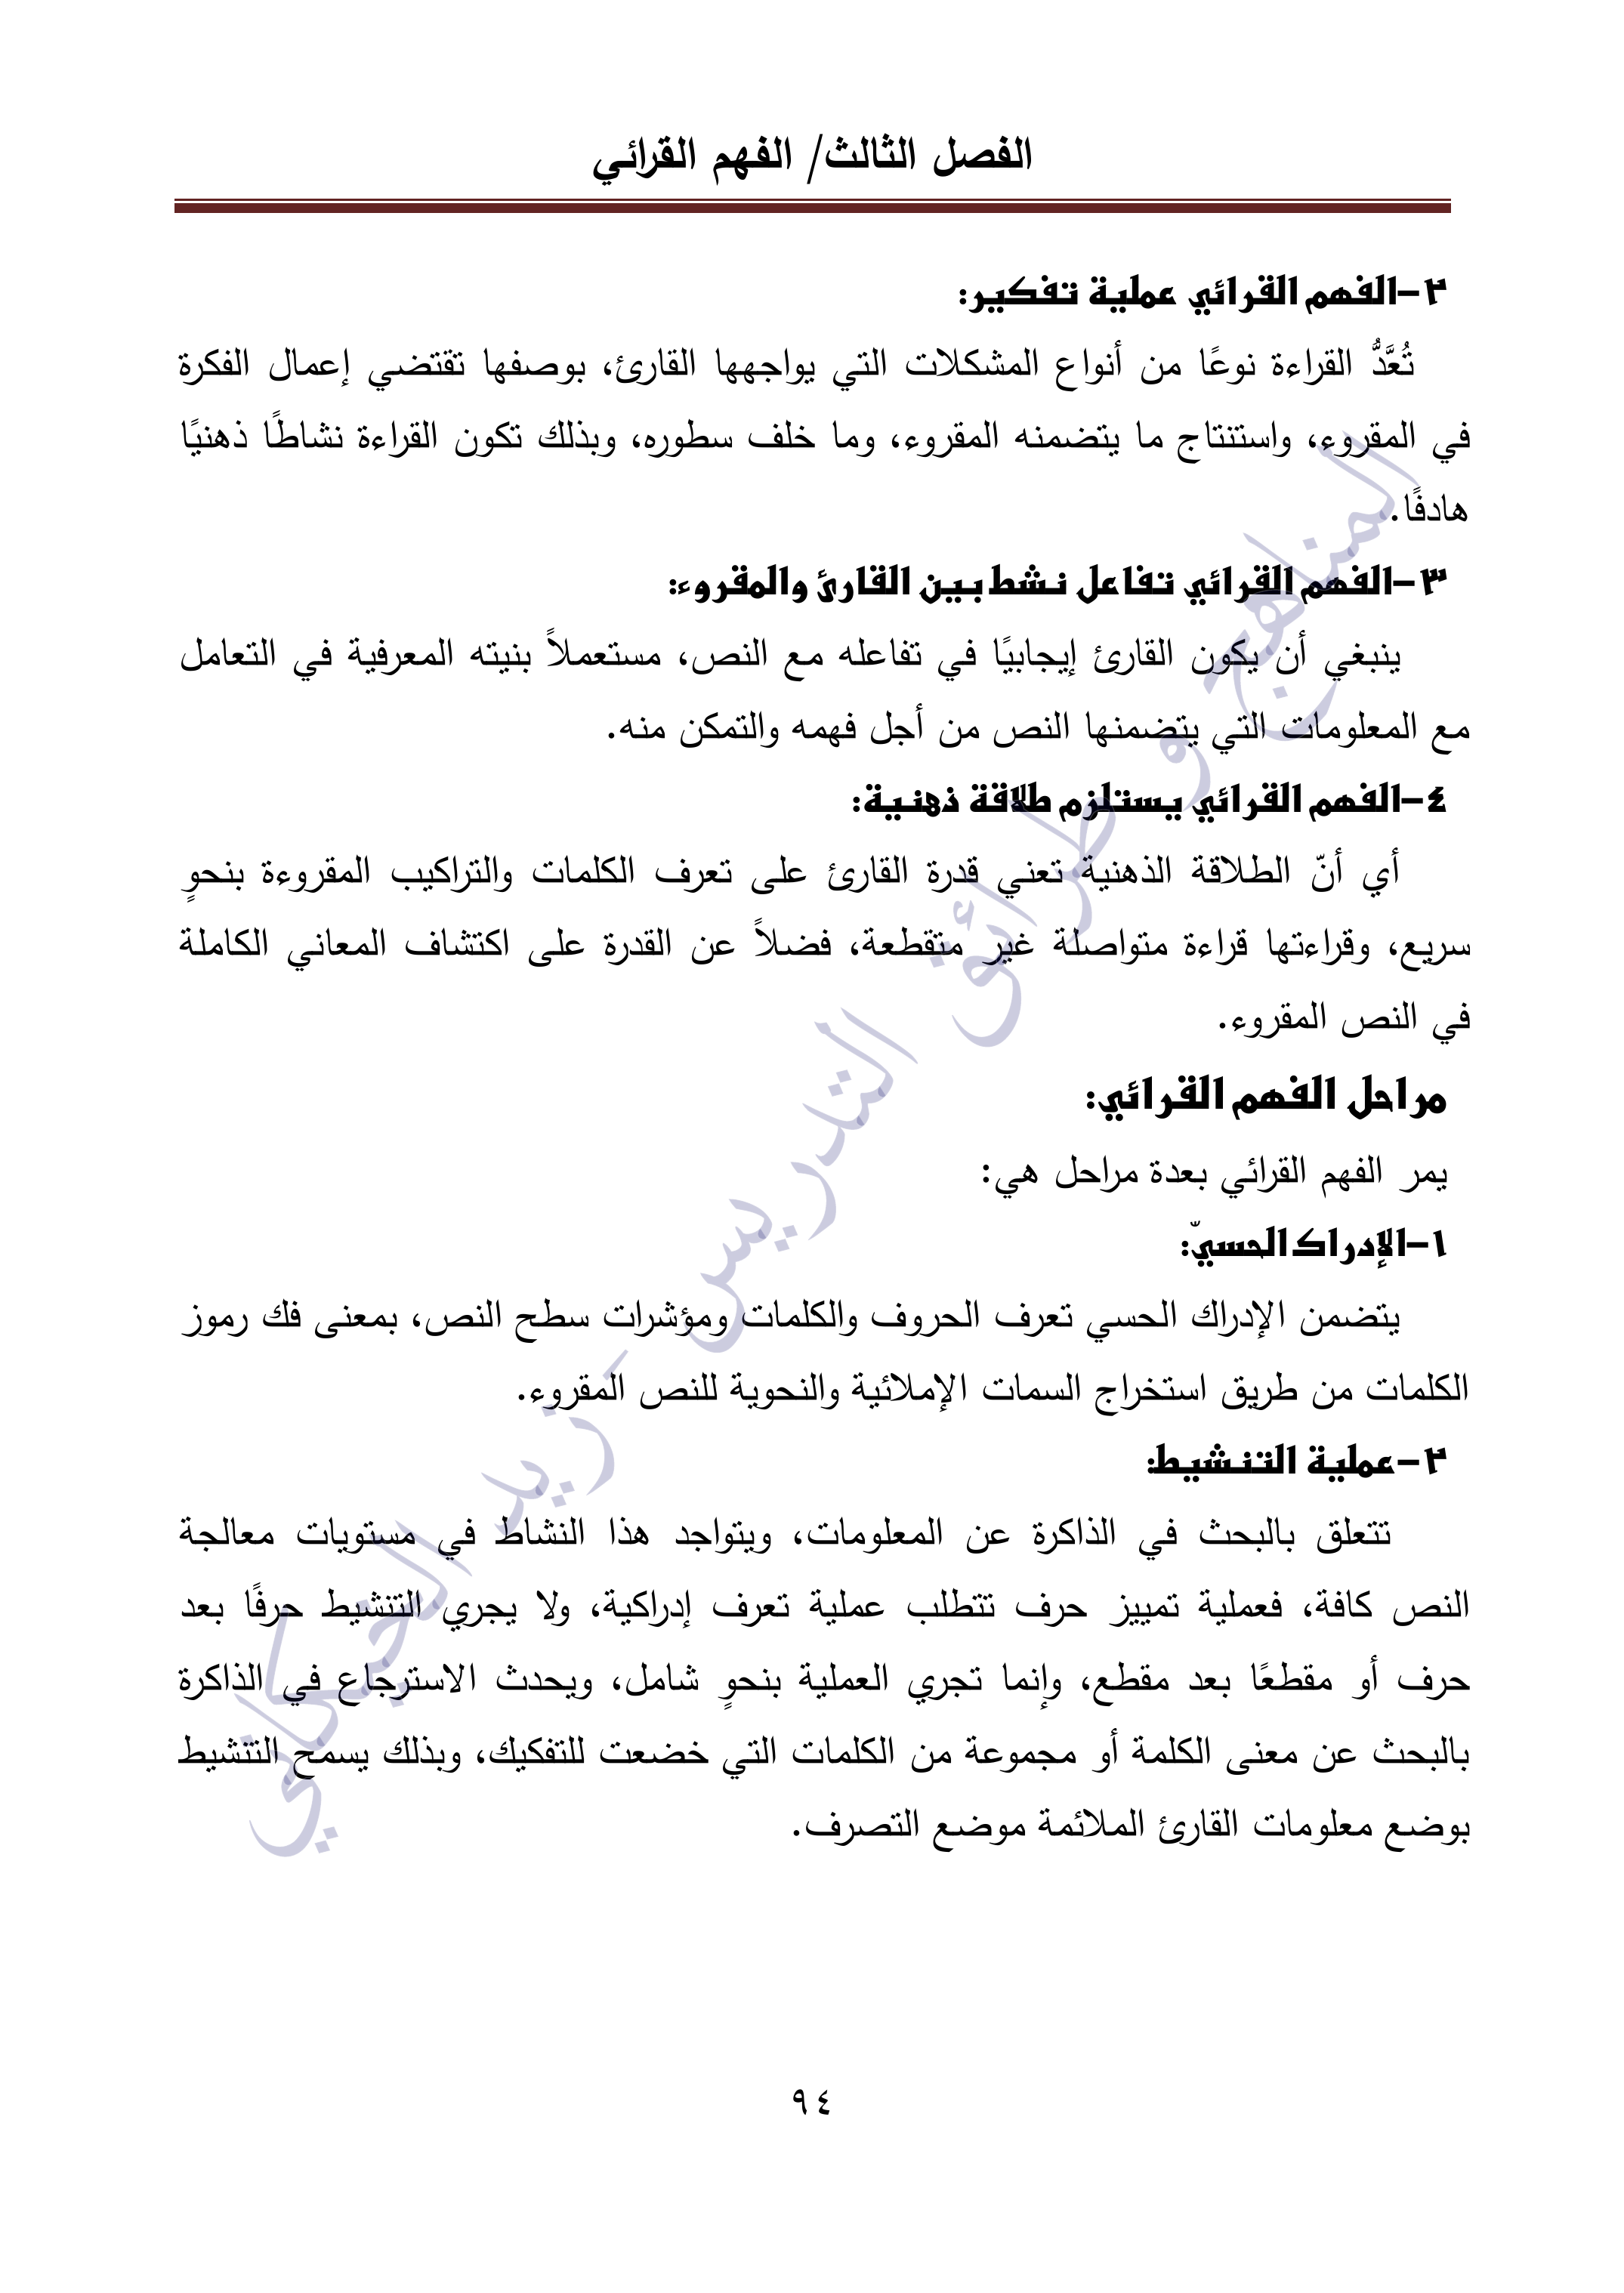 الفصل الثالث/ الفهم القرائي
٢-الفهم القرائي عملية تفكير:
تُعَّدُّ القراءة نوعًا من أنواع المشكلات التي يواجهها القارئ، بوصفها تقتضي إعمال الفكرة
في المقروء، واستنتاج ما يتضمنه المقروء، وما خلف سطوره، وبذلك تكون القراءة نشاطًا ذهنيًا
هادفًا.
٣-الفهم القرائي تفاعل نشط بين القارئ والمقروء:
ينبغي أن يكون القارئ إيجابيًا في تفاعله مع النص، مستعملاً بنيته المعرفية في التعامل
مع المعلومات التي يتضمنها النص من أجل فهمه والتمكن منه.
٤-الفهم القرائي يستلزم طلاقة ذهنية:
أي أنّ الطلاقة الذهنية تعني قدرة القارئ على تعرف الكلمات والتراكيب المقروءة بنحوٍ
سريع، وقراءتها قراءة متواصلة غير متقطعة، فضلاً عن القدرة على اكتشاف المعاني الكاملة
في النص المقروء.
مراحل الفهم القرائي:
يمر الفهم القرائي بعدة مراحل هي:
١-الإدراك الحسيّ:
يتضمن الإدراك الحسي تعرف الحروف والكلمات ومؤشرات سطح النص، بمعنى فك رموز
الكلمات من طريق استخراج السمات الإملائية والنحوية للنص المقروء.
٢-عملية التنشيط:
تتعلق بالبحث في الذاكرة عن المعلومات، ويتواجد هذا النشاط في مستويات معالجة
النص كافة، فعملية تمييز حرف تتطلب عملية تعرف إدراكية، ولا يجري التنشيط حرفًا بعد
حرف أو مقطعًا بعد مقطع، وإنما تجري العملية بنحوٍ شامل، ويحدث الاسترجاع في الذاكرة
بالبحث عن معنى الكلمة أو مجموعة من الكلمات التي خضعت للتفكيك، وبذلك يسمح التنشيط
بوضع معلومات القارئ الملائمة موضع التصرف.
المناهج و طرائق التدريس - زيد الخيكاني
٩٤